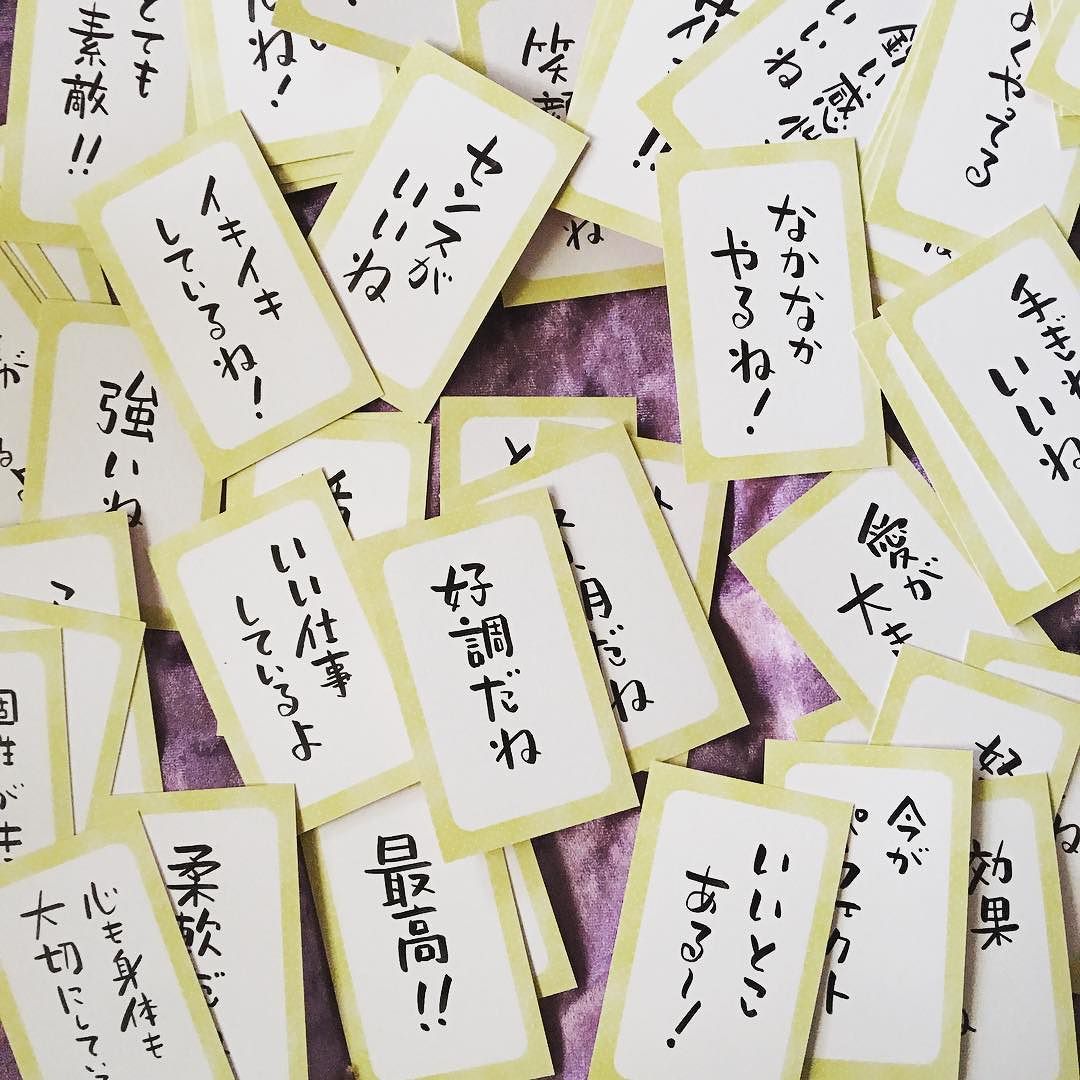 とても
素敵!!
ね!
笑顔
!!
いいね
鋭い感
よくやってる
イキイキ
しているね!
センスが
いいね
ね
なかなか
やるね!
手ぎわ
いいね
が
強いね
愛が
大き
いい仕事
しているよ
好調だね
月だね
個性が
心も身体も
大切にしてい
柔軟だ
最高!!
いいとこ
ある〜!
今が
パーフェクト
好
効果